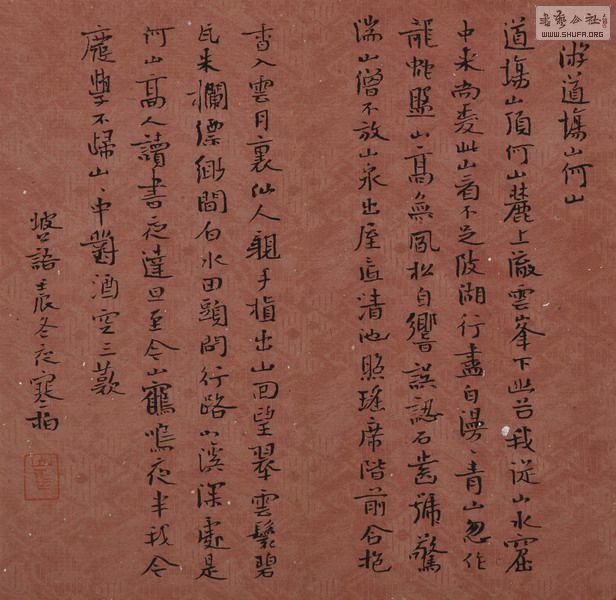 书艺公社
WWW.SHUFA.ORG
游道場山何山
道場山頂何山麓上徹雲峯下幽谷我從山水窟
中来尚愛此山看不足陂湖行盡白漫々青山忽作
龍蛇盤山高無風松自響誤認石齒號驚
湍山僧不放山泉出屋底清池照瑤席階前合抱
香入雲月裏仙人親手植出山回望翠雲鬟碧
瓦朱欄縹緲間白水田頭問行路小溪深處是
何山高人讀書夜達旦至今山鶴鳴夜半我今
廢學不歸山々中對酒空三歎
坡語壬辰冬夜寒柏